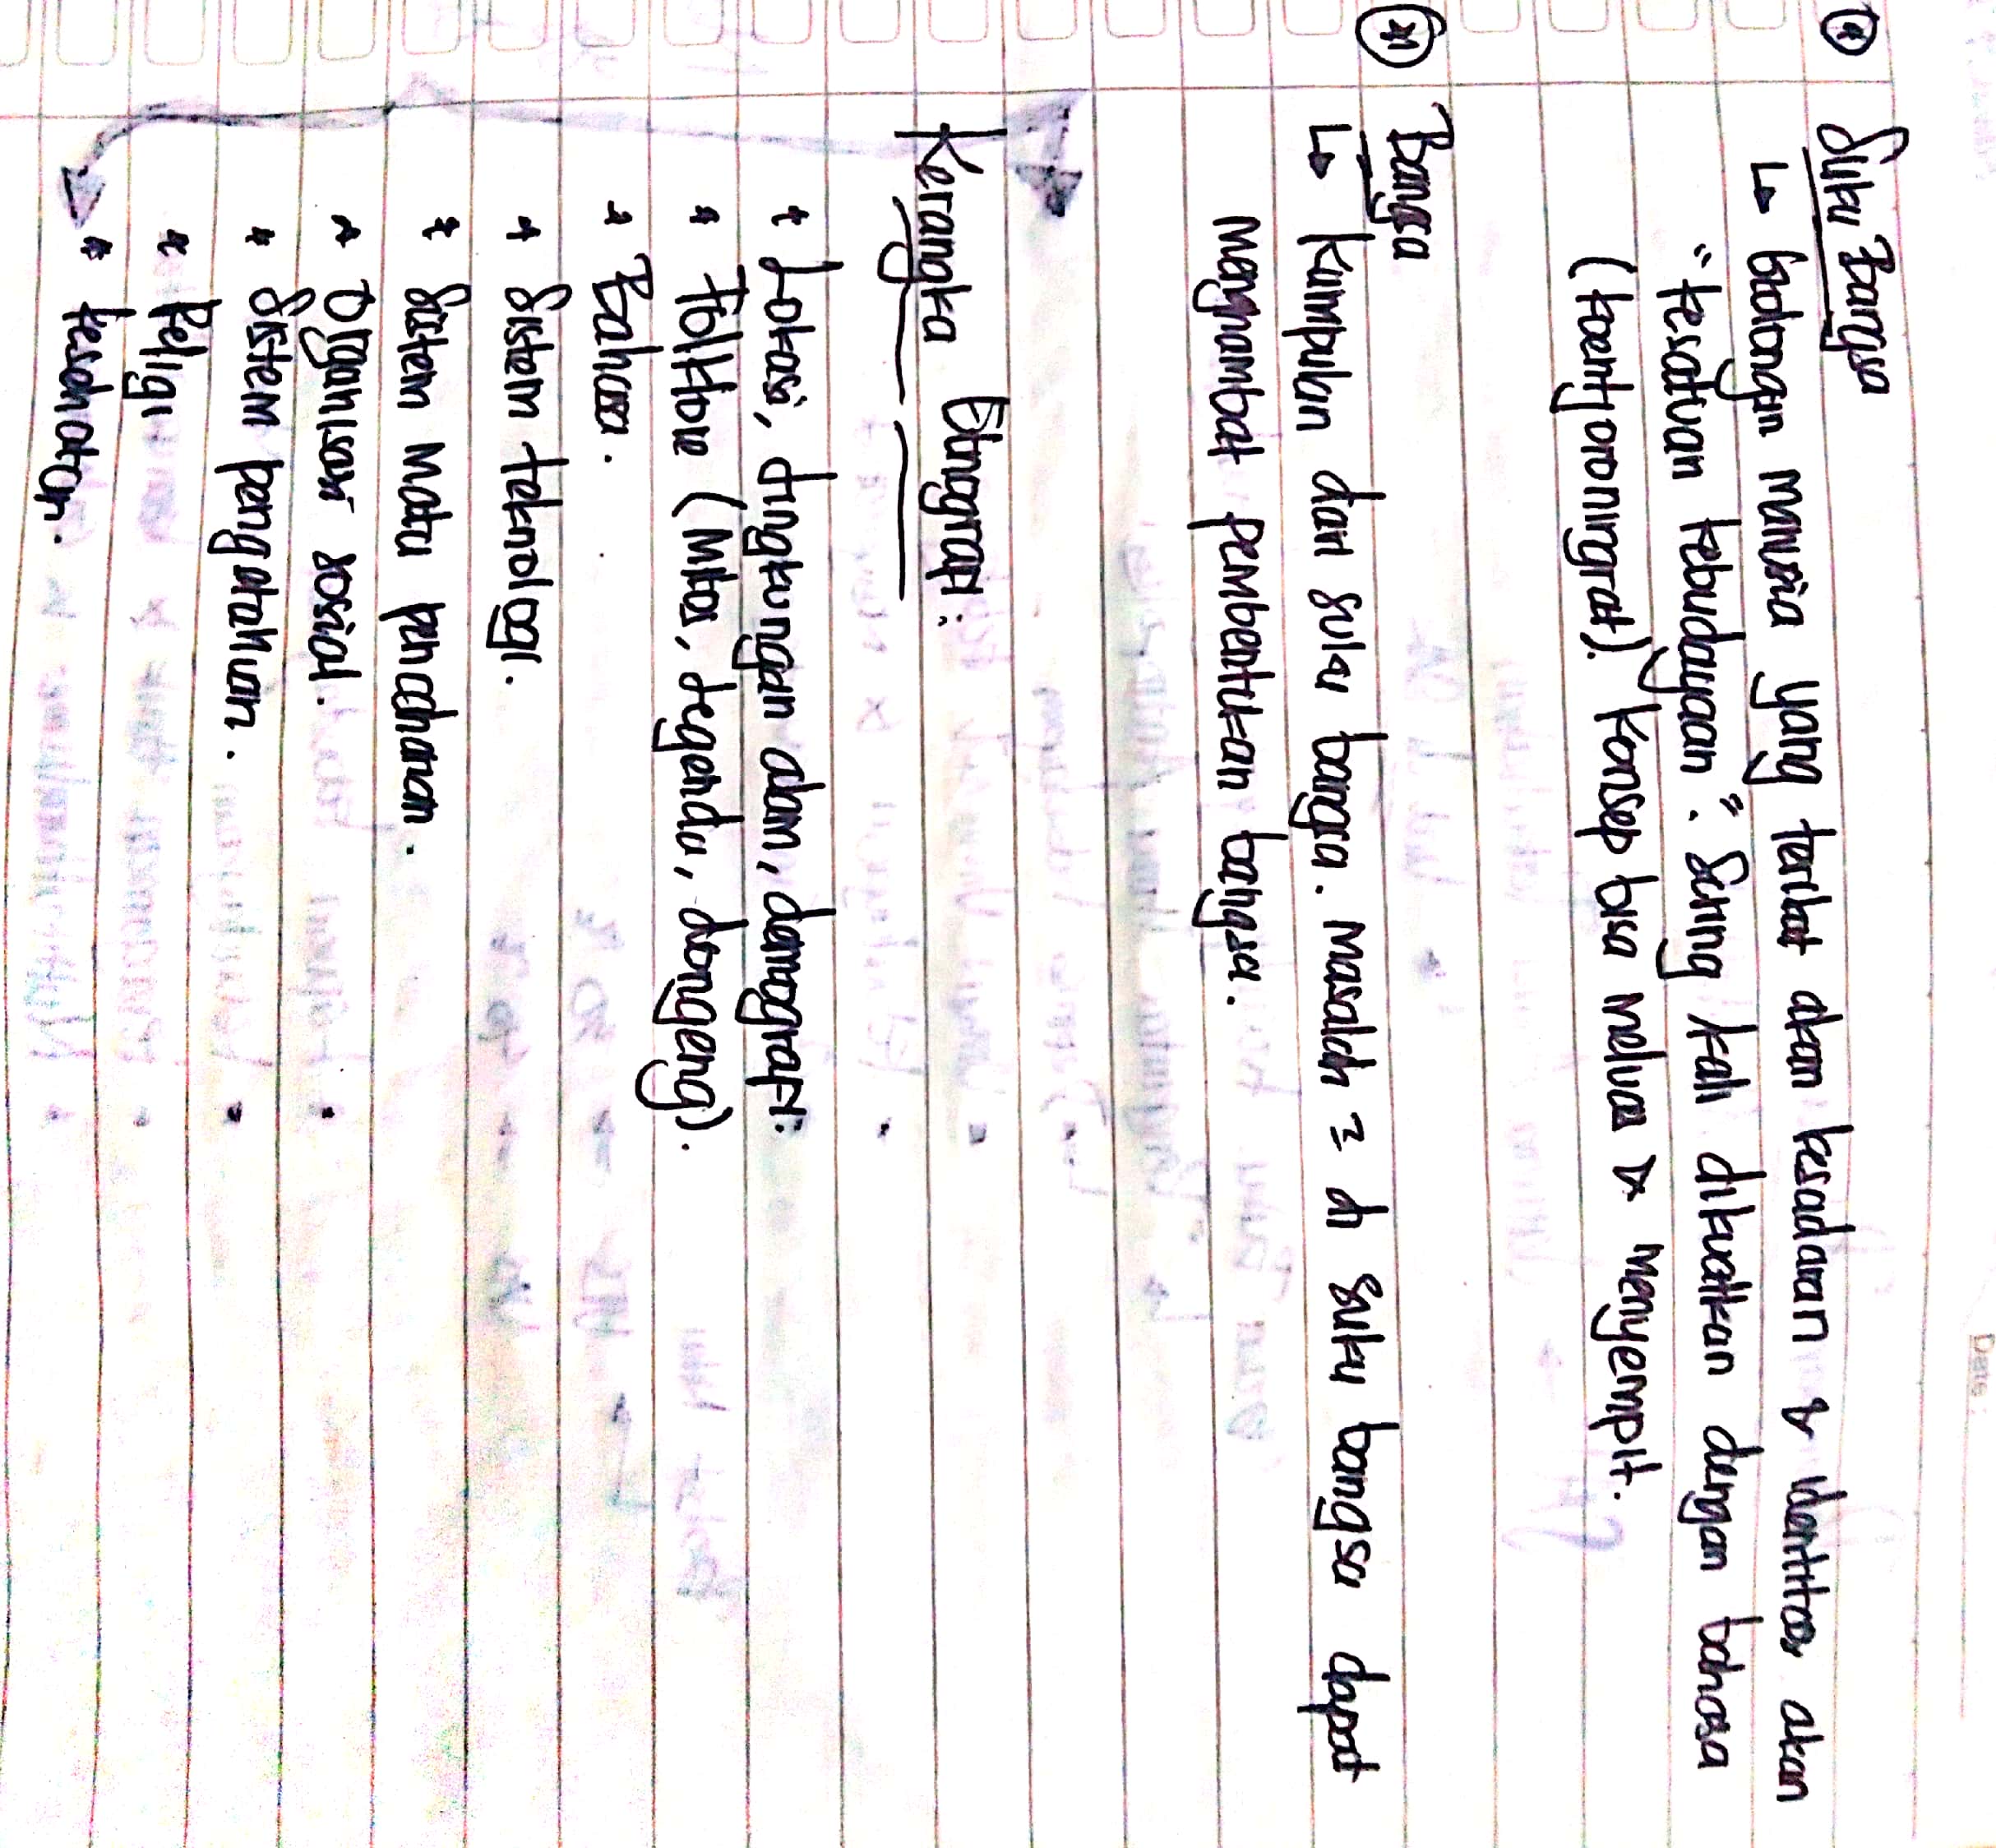 Date:
Suku Bangsa
↳ Golongan manusia yang terikat akan kesadaran & identitas akan
"kesatuan kebudayaan". Sering kali dikuatkan dengan bahasa
(Koentjoroningrat). Konsep bisa meluas & menyempit.
Bangsa
↳ Kumpulan dari suku bangsa. Masalah ² di suku bangsa dapat
menghambat pembentukan bangsa.
Kerangka Etnografi:
* Lokasi, lingkungan alam, demografi:
* Folklore (Mitos, legenda, dongeng).
* Bahasa.
* Sistem teknologi.
* Sistem mata pencaharian.
* Organisasi sosial.
* Sistem pengetahuan.
* Religi
* kesenian.